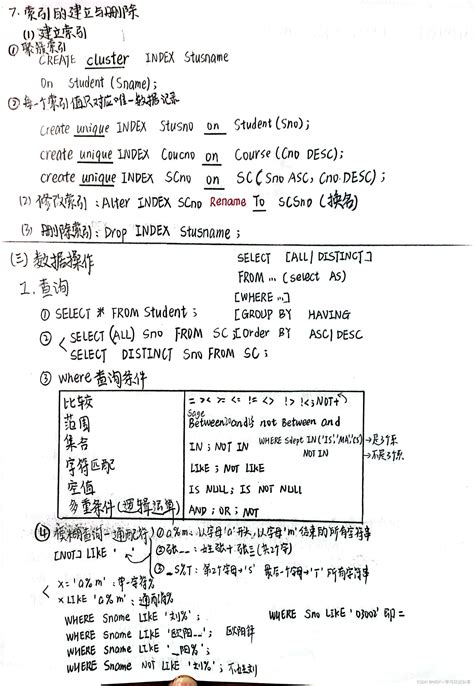 7. 索引的建立与删除
(1) 建立索引
① 聚簇索引
CREATE cluster INDEX Stusname
On Student (Sname);
② 每一个索引值只对应唯一数据记录
Create unique INDEX Stusno on Student (Sno);
create unique INDEX Coucno on Course (Cno DESC);
create unique INDEX SCno on SC (Sno ASC, Cno DESC);
(2) 修改索引: Alter INDEX SCno Rename To SCSno (换名)
(3) 删除索引: Drop INDEX Stusname;
(三) 数据操作
SELECT [ALL|DISTINCT]
FROM … (select AS)
1. 查询
[WHERE …]
① SELECT * FROM Student;
[GROUP BY HAVING
② SELECT (ALL) Sno FROM SC;
[Order BY ASC|DESC
SELECT DISTINCT Sno FROM SC;
③ where 查询条件
比较 = > < >= <= != <> !> !<; NOT+
范围 Between and; not Between and
集合 IN; NOT IN WHERE Sdept IN ('IS','MA','CS') →是3个系
NOT IN →不是3个系
字符匹配 LIKE; NOT LIKE
空值 IS NULL; IS NOT NULL
多重条件 (逻辑运算) AND; OR; NOT
④ 模糊查询-通配符
[NOT] LIKE ' '
① a%m: 以字母'a'开头, 以字母'm'结束的所有字符串
② 张__: 姓张
③ _S%T: 第2个字母→'S' 最后一个字母→'T' 所有字符串
X = 'a%m': 单一字符%
X LIKE 'a%m': 通配符%
WHERE Sname LIKE '刘%';
WHERE Sno LIKE '03002' 即 =
WHERE Sname LIKE '欧阳__';
WHERE Sname LIKE '_阳%';
WHERE Sname NOT LIKE '刘%'; 不姓刘